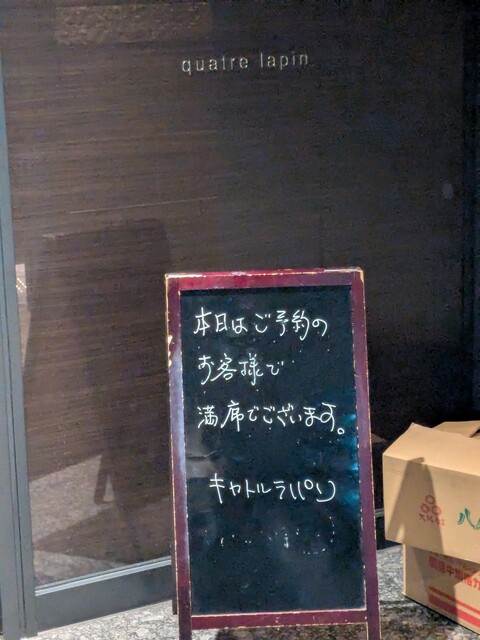 quatre lapin
本日はご予約の
お客様で
満席でございます。
キャトルラパン